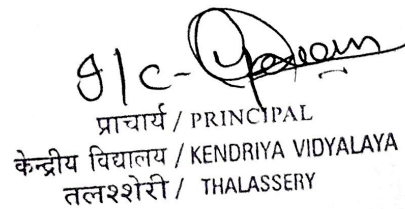 I/C-
प्राचार्य / PRINCIPAL
केन्द्रीय विद्यालय / KENDRIYA VIDYALAYA
तलश्शेरी / THALASSERY